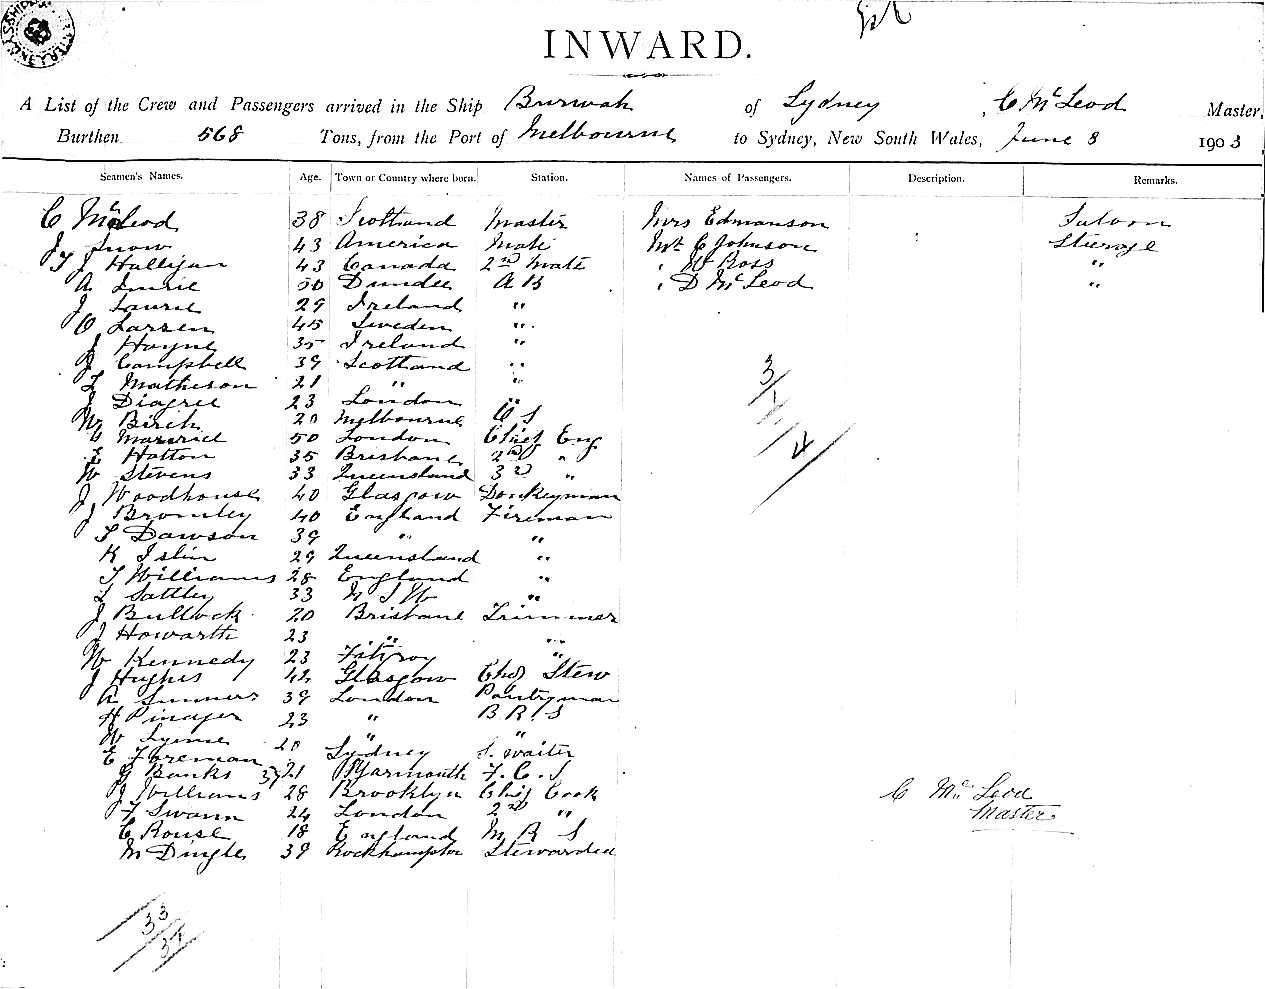 INWARD.
A List of the Crew and Passengers arrived in the Ship Burwah of Sydney, C McLeod Master,
Burthen 568 Tons, from the Port of Melbourne to Sydney, New South Wales, June 8 1903
Seamen's Names. Age. Town or Country where born. Station. Names of Passengers. Description. Remarks.
C McLeod 38 Scotland Master Mrs Edmanson Saloon
J Snow 43 America Mate Mr C Johnson Steerage
T J Halligan 43 Canada 2nd Mate " W Ross "
A Lurie 50 Dundee A B " D McLeod "
J Laurie 29 Ireland "
O Larsen 45 Sweden "
J Hayne 35 Ireland "
J Campbell 39 Scotland "
L Matheson 21 " "
J 23 London "
Wm Birch 20 Melbourne O S
50 London Chief Eng
E Hatton 35 Brisbane 2nd "
W Stevens 33 Queensland 3rd "
J Woodhouse 40 Glasgow Donkeyman
J Bromley 40 England Fireman
T Dawson 39 " "
K Islin 29 Queensland "
T Williams 28 England "
L Sattley 33 N S W "
J Bullock 20 Brisbane Trimmer
J Howarth 23 " "
W Kennedy 23 Fitzroy "
J Hughes 42 Glasgow Chief Stew
A Summers 39 London Pantryman
H 23 " B R S
W Lynne 20 " "
E Foreman Sydney S. Waiter
G Banks 21 Yarmouth F. C. S
J Williams 28 Brooklyn Chief Cook
F Swann 24 London 2nd "
C Rouse 18 England M R S
M Dingle 39 Rockhampton Stewardess
3/1/4
C McLeod
Master
33